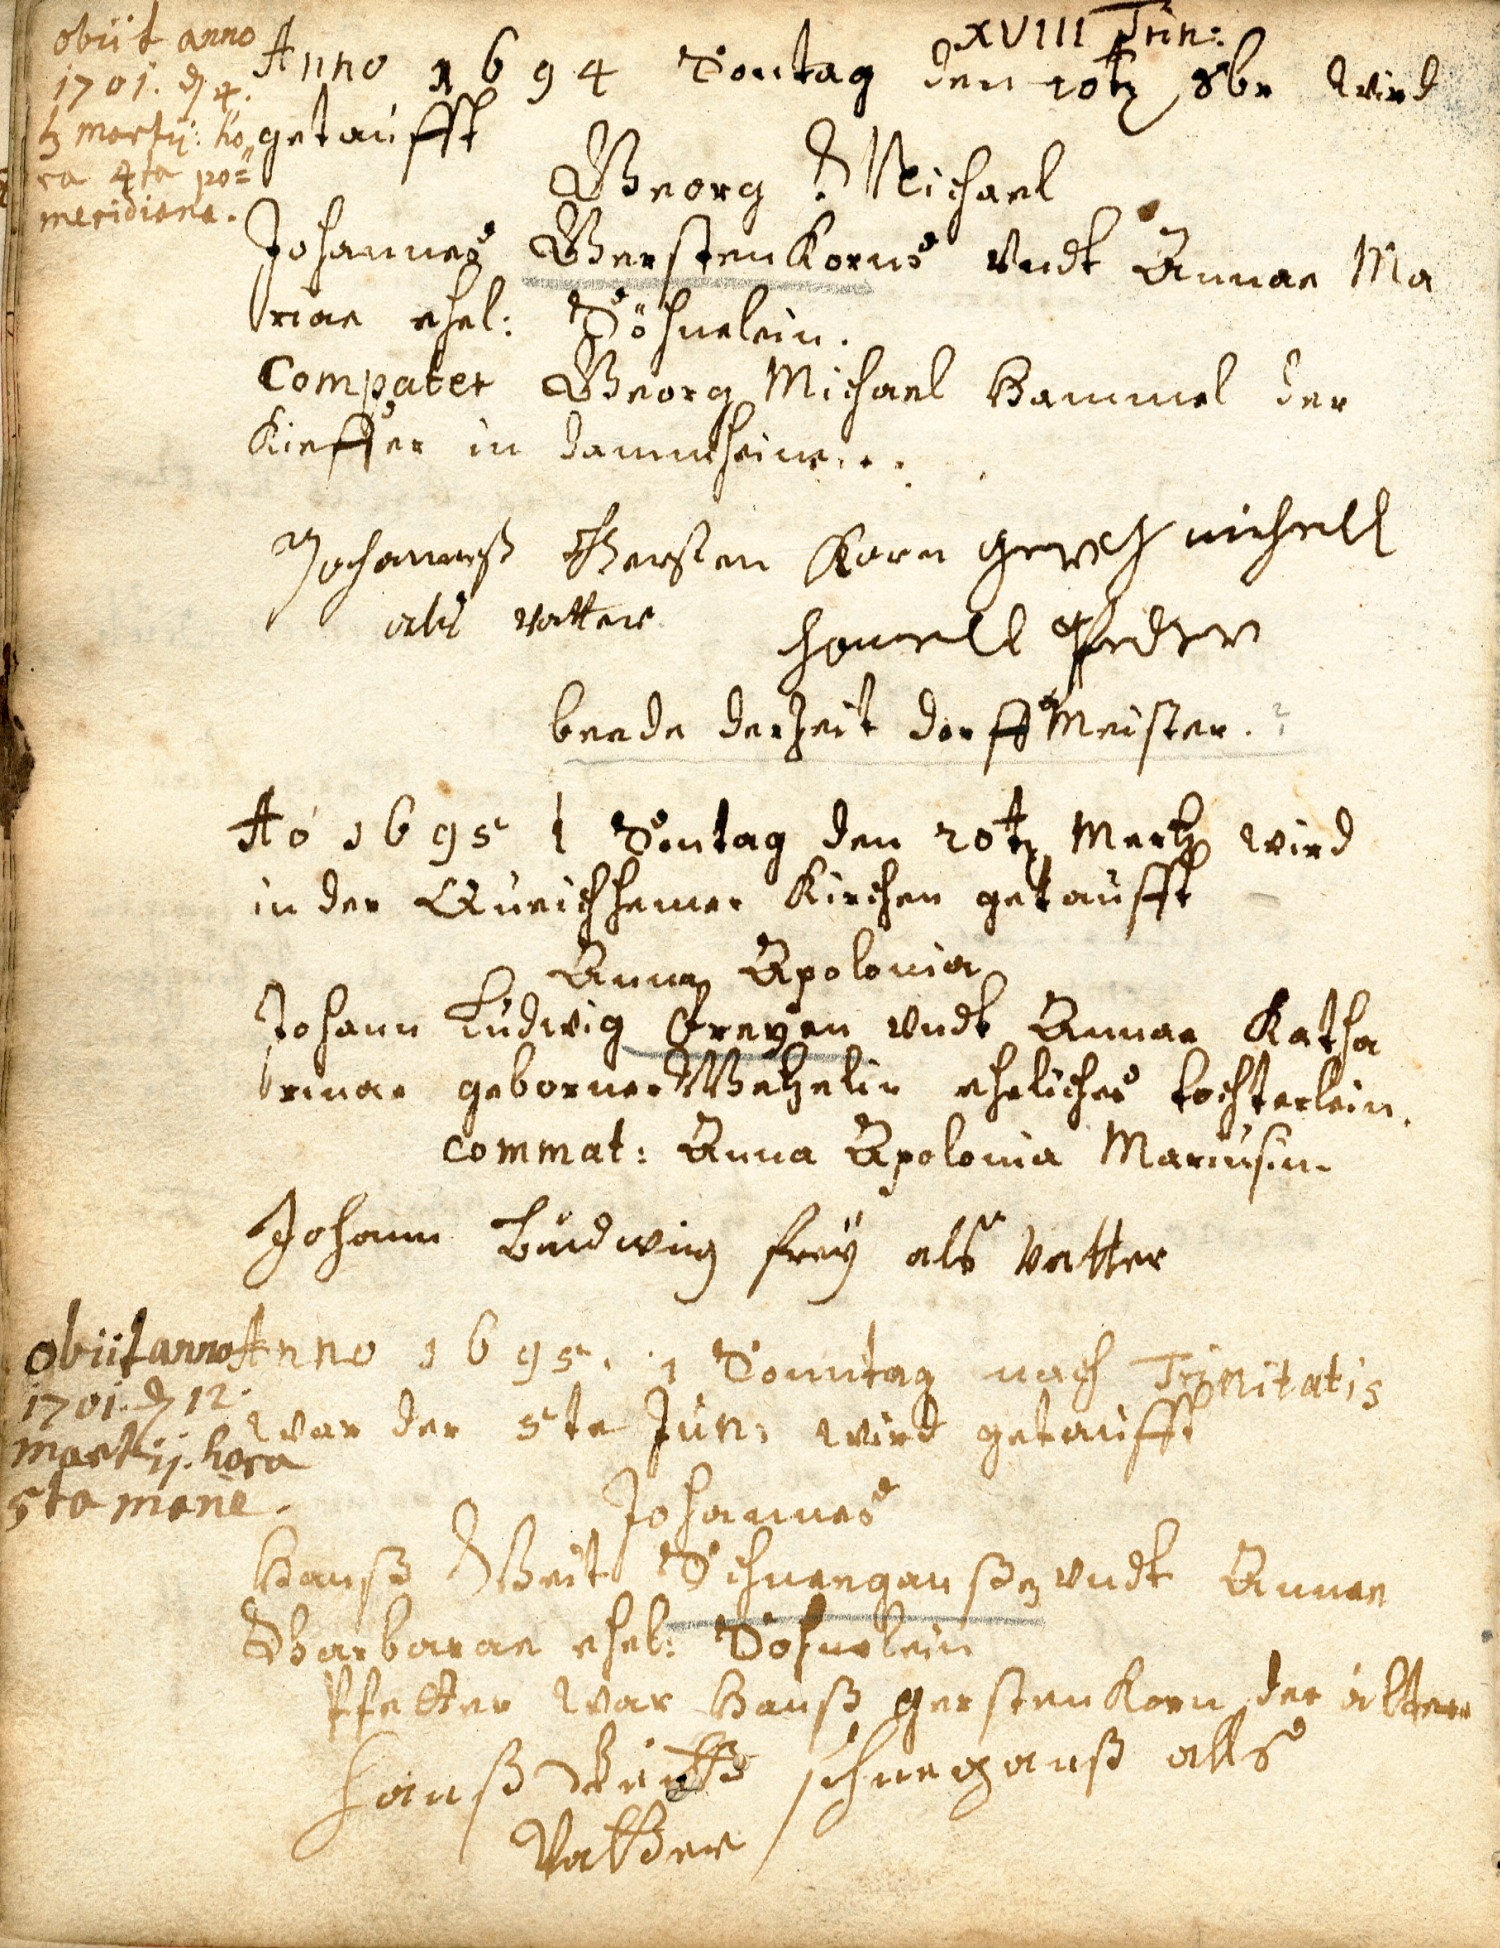 obiit anno
1701. d 4.
Martij: ho
ra 4ta po=
meridiana.
XVIII Trin:
Anno 1694 Sontag den 10t 8br wird
getaufft
Georg Michael
Johannes Gerstenkorns undt Annae Ma
riae ehel: Söhnelein.
Compater Georg Michael Hammel der
Kieffer in Dammheim.
Johanneß Gersten Korn gerch michell
als vatter hamell Pfeder
beede derzeit dorff Meister.
Ao 1695 Sontag den 20t Mertz wird
in der Queichheimer Kirchen getaufft
Anna Apolonia
Johann Ludwig Freyen undt Annae Katha
rinae geborner Wetzelin eheliches tochterlein.
Commat: Anna Apolonia Mariusin
Johann Ludwig frey als Vatter
obiit anno
1701. d 12.
Martij. hora
5ta mane.
Anno 1695. 1 Sonntag nach Trinitatis
war der 5te Jun: wird getaufft
Johannes
Hanß Veit Schneeganßen undt Annae
Barbarae ehel: Söhnelein
Pfetter war Hanß gerstenkorn der älter
hanß schneganß alls
Vatter